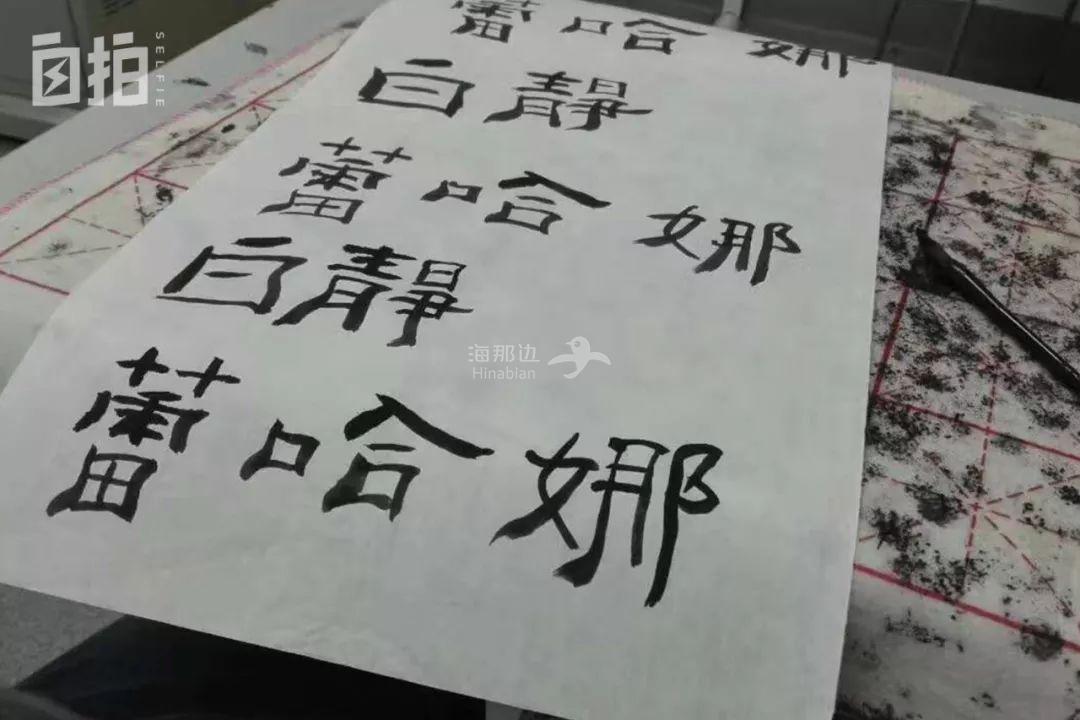 自拍
SELFIE
蕾哈娜
白靜
蕾哈娜
白靜
蕾哈娜
海那边
Hinabian